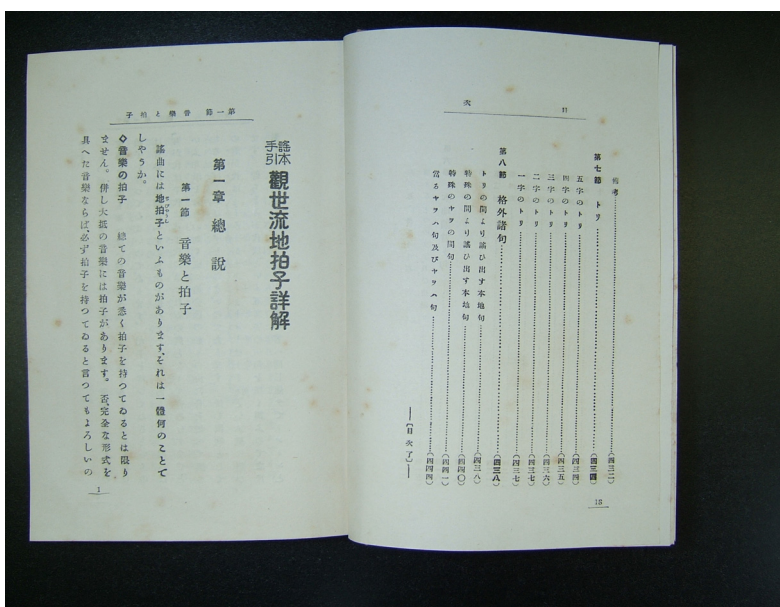 目次
備考……(四三二)
第七節 トリ……(四三四)
五字のトリ……(四三四)
四字のトリ……(四三五)
三字のトリ……(四三六)
二字のトリ……(四三七)
一字のトリ……(四三七)
第八節 格外諸句……(四三八)
トリの間より謠ひ出す本地句……(四三八)
特殊の間より謠ひ出す本地句……(四四〇)
特殊のヤヲの間句……(四四一)
當るヤヲハ句及びヤヲハ句……(四四四)
――【目次了】――
18
第一節 音樂と拍子
謠本手引 觀世流地拍子詳解
第一章 總說
第一節 音樂と拍子
謠曲には地拍子といふものがあります、それは一體何のことで
しやうか。
◇音樂の拍子 總ての音樂が悉く拍子を持つてゐるとは限り
ません。併し大抵の音樂には拍子があります。否、完全な形式を
具へた音樂ならば、必ず拍子を持つてゐると言つてもよろしいの
1